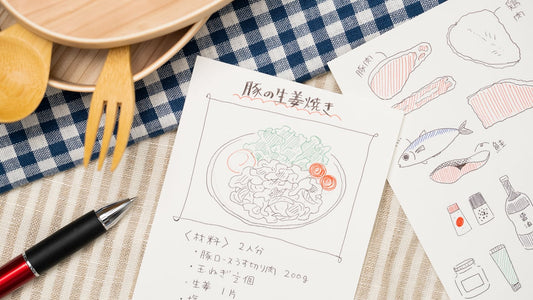 豚の生姜焼き
〈材料〉 2人分
・豚ロースうす切り肉 200g
・玉ねぎ ½個
・生姜 1片
豚肉
鶏肉